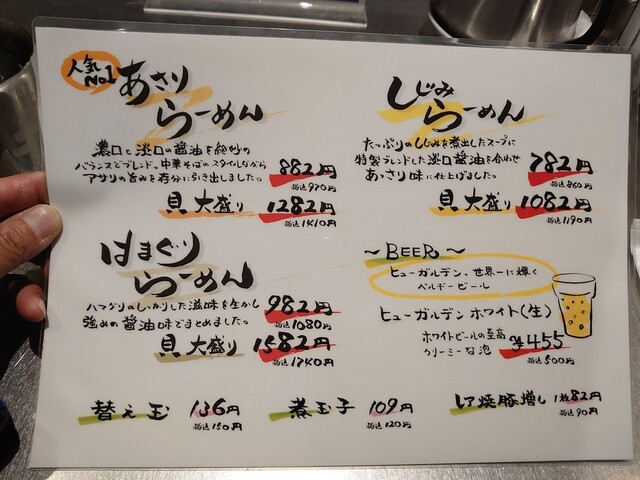 人気
No1
あさり
らーめん
濃口と淡口の醤油を絶妙の
バランスでブレンド。中華そばのスタイルながら
アサリの旨みを存分に引き出しました。
882円
税込970円
貝大盛り 1282円
税込1410円
しじみ
らーめん
たっぷりのしじみを煮出したスープに
特製ブレンドした淡口醤油を合わせ
あっさり味に仕上げました。
782円
税込860円
貝大盛り 1082円
税込1190円
はまぐり
らーめん
ハマグリのしっかりした滋味を生かし
強めの醤油味でまとめました。
982円
税込1080円
貝大盛り 1582円
税込1740円
~BEER~
ヒューガルデン、世界一に輝く
ベルギービール
ヒューガルデンホワイト(生)
ホワイトビールの至高
クリーミーな泡
¥455
税込500円
替え玉 136円
税込150円
煮玉子 109円
税込120円
レア焼豚増し 1枚82円
税込90円